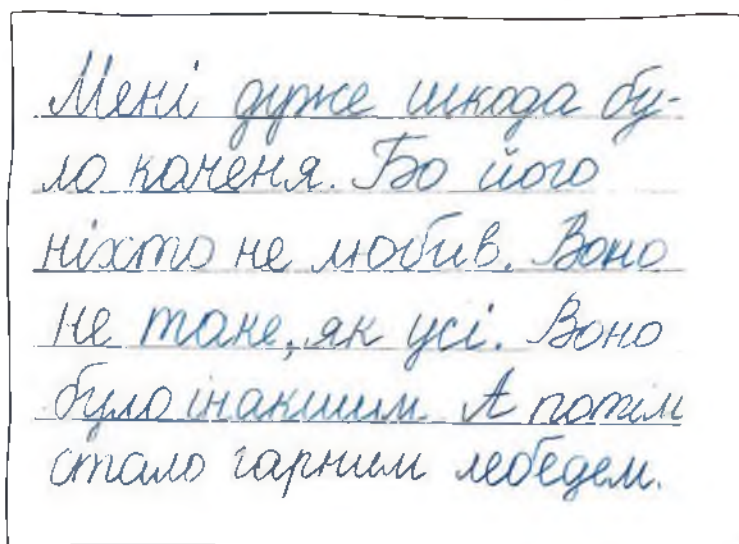 Мені дуже шкода бу-
ло каченя. Бо його
ніхто не любив. Воно
не таке, як усі. Воно
було інакшим. А потім
стало гарним лебедем.